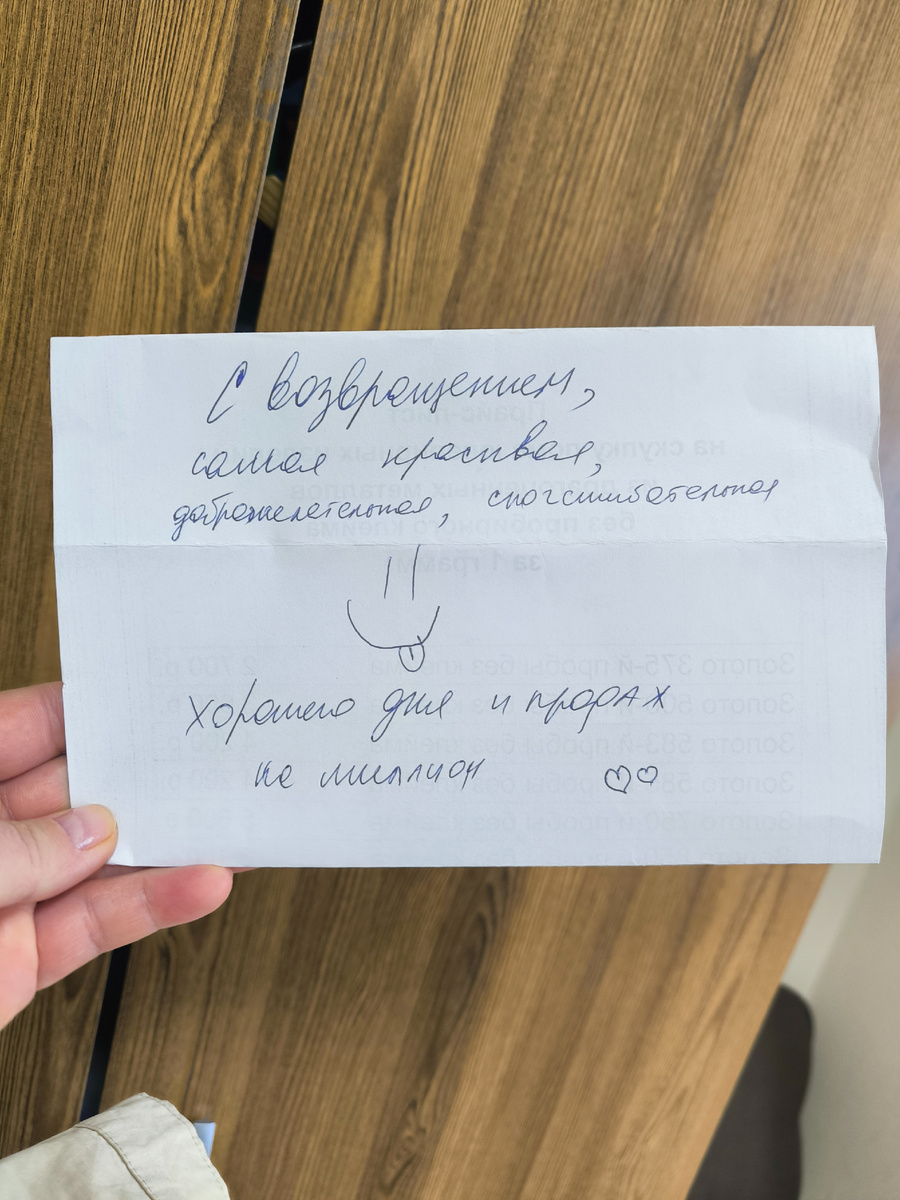 С возвращением,
самая красивая,
доброжелательная, сногсшибательная
хорошего дня и продаж
на миллион
Прайс-лист
на скупку
металлов
без пробирного клейма
за 1 грамм
Золото 375-й пробы без клейма 2 700 р.
Золото
Золото 583-й пробы без клейма
Золото пробы без клейма
Золото 750-й пробы без клейма